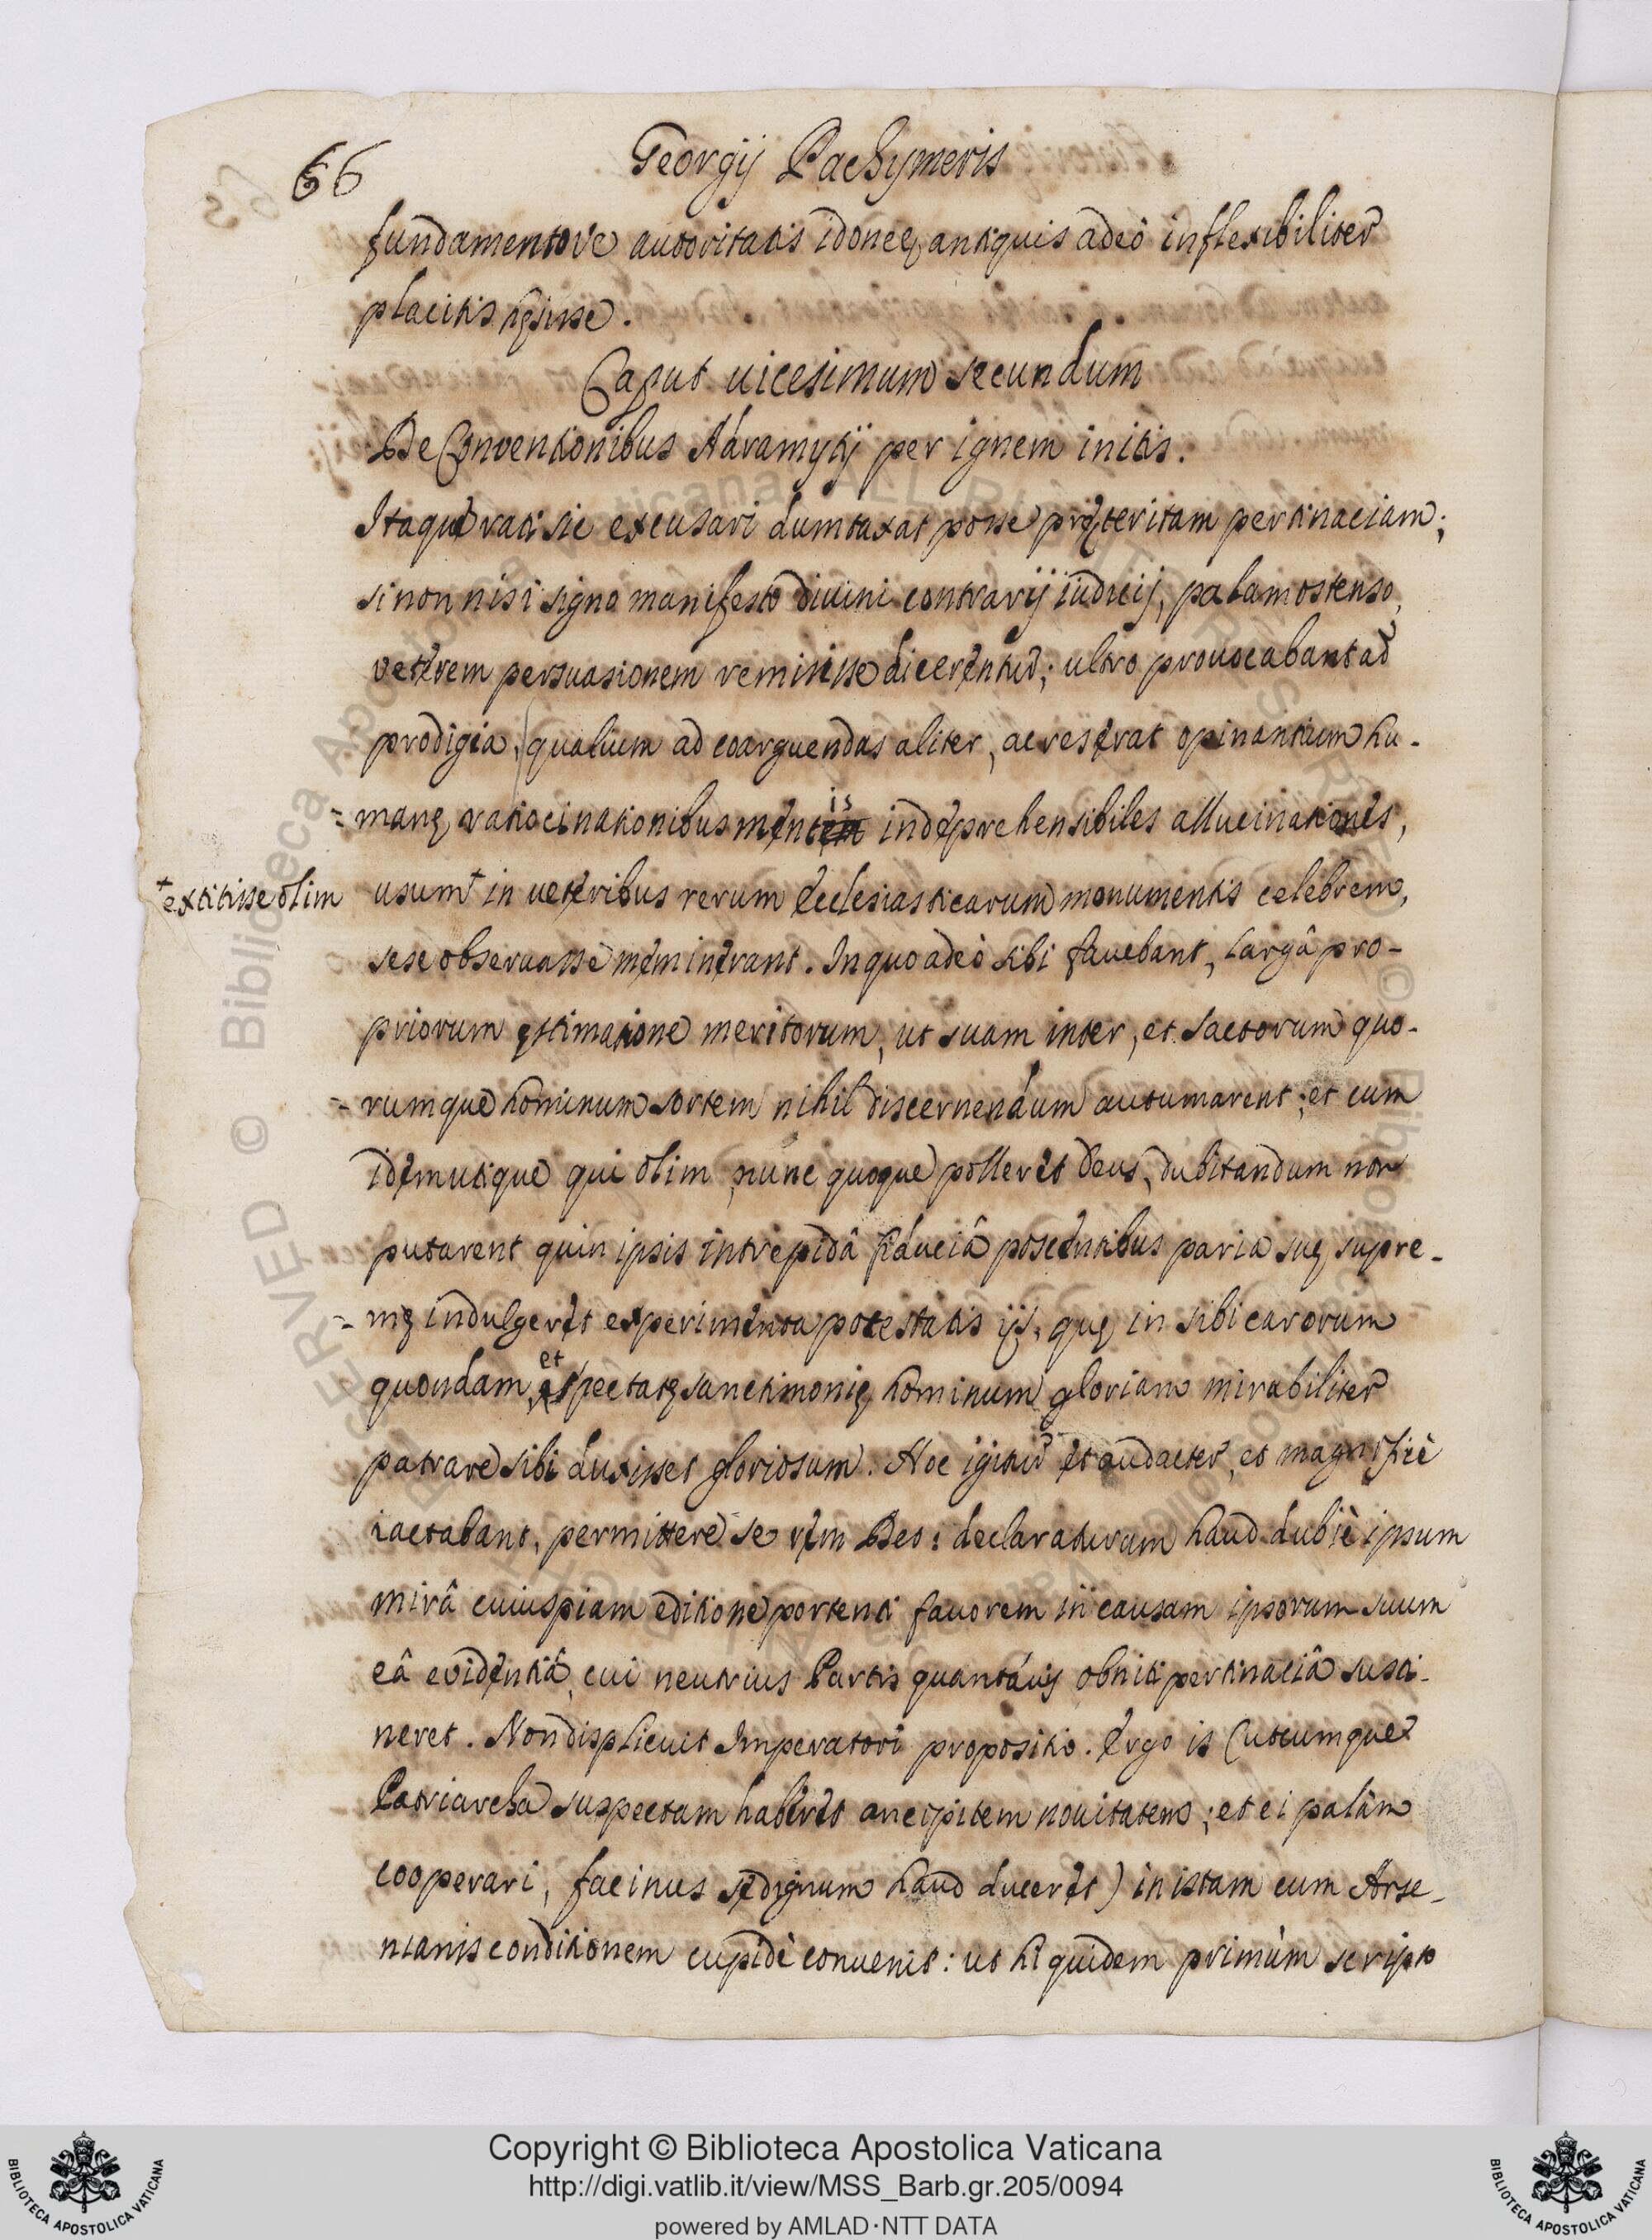 66
Georgij Pachymeris
fundamentove autoritatis idoneę, antiquis adeò inflexibiliter
placitis hęsisse.
Caput uicesimum secundum
De Conventionibus Adramytij per ignem initis.
Itaque rati sic excusari dumtaxat posse pręteritam pertinaciam;
si non nisi signo manifesto diuini contrarij iudicij, palam ostenso,
veterem persuasionem remisisse dicerentur; ultro prouocabant ad
prodigia, qualium ad coarguendas aliter, ac res erat opinantium hu-
manę, ratiocinationibus mentis indeprehensibiles allucinationes,
+ extitisse olim
usum + in ueteribus rerum Ecclesiasticarum monumentis celebrem,
sese obseruasse meminerant. In quo adeò sibi fauebant, largâ pro-
priorum ęstimatione meritorum, ut suam inter, et sanctorum quo-
rumque hominum sortem nihil discernendum autumarent; et cum
idem utique qui olim, nunc quoque polleret Deus, dubitandum non
putarent quin ipsis intrepidâ fiduciâ poscentibus paria suę supre-
mę indulgeret experimenta potestatis ijs, quę in sibi carorum
quondam, et spectatę sanctimonię hominum gloriam mirabiliter
patrare sibi duxisset gloriosum. Hoc igitur et audacter, et magnificè
iactabant, permittere se rem Deo: declaraturum haud dubiè ipsum
mirâ cuiuspiam editione portenti fauorem in causam ipsorum suum
eâ evidentiâ, cui neutrius Partis quantáuis obniti pertinaciâ susti-
neret. Non displicuit Imperatori propositio. Ergo is (utcumque
Patriarcha suspectam haberet ancipitem nouitatem; et ei palàm
cooperari, facinus se dignum haud duceret) in istam cum Arse-
nianis conditionem cupidè conuenit: ut hi quidem primùm scripto
Copyright © Biblioteca Apostolica Vaticana
http://digi.vatlib.it/view/MSS_Barb.gr.205/0094
powered by AMLAD·NTT DATA
BIBLIOTECA APOSTOLICA VATICANA
BIBLIOTECA APOSTOLICA VATICANA